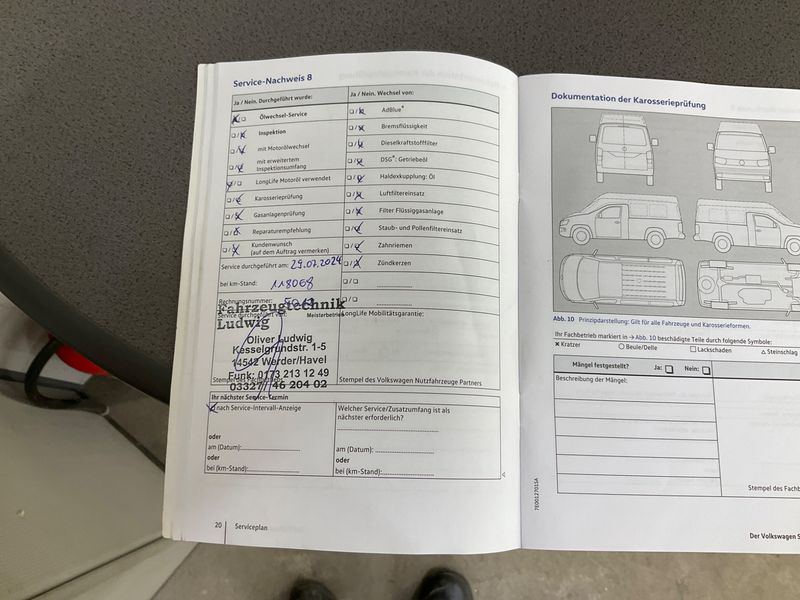 Service-Nachweis 8
Ja / Nein. Durchgeführt wurde:
Ölwechsel-Service
Inspektion
mit Motorölwechsel
mit erweitertem
Inspektionsumfang
LongLife Motoröl verwendet
Karosserieprüfung
Gasanlagenprüfung
Reparaturempfehlung
Kundenwunsch
(auf dem Auftrag vermerken)
Service durchgeführt am: 29.07.2024
bei km-Stand: 118068
Rechnungsnummer:
Service durchgeführt von:
Fahrzeugtechnik
Meisterbetrieb
Ludwig
Oliver Ludwig
Kesselgrundstr. 1-5
14542 Werder/Havel
Funk: 0173 213 12 49
03327 / 46 204 02
Ja / Nein. Wechsel von:
AdBlue®
Bremsflüssigkeit
Dieselkraftstofffilter
DSG®: Getriebeöl
Haldexkupplung: Öl
Luftfiltereinsatz
Filter Flüssiggasanlage
Staub- und Pollenfiltereinsatz
Zahnriemen
Zündkerzen
LongLife Mobilitätsgarantie:
Stempel des Volkswagen Nutzfahrzeuge Partners
Ihr nächster Service-Termin
nach Service-Intervall-Anzeige
oder
am (Datum):
oder
bei (km-Stand):
Welcher Service/Zusatzumfang ist als
nächster erforderlich?
am (Datum):
oder
bei (km-Stand):
20
Serviceplan
Dokumentation der Karosserieprüfung
Abb. 10 Prinzipdarstellung: Gilt für alle Fahrzeuge und Karosserieformen.
Ihr Fachbetrieb markiert in → Abb. 10 beschädigte Teile durch folgende Symbole:
× Kratzer
○ Beule/Delle
□ Lackschaden
△ Steinschlag
Mängel festgestellt?
Ja:
Nein:
Beschreibung der Mängel:
Stempel des Fachb
7E0012701SA
Der Volkswagen S